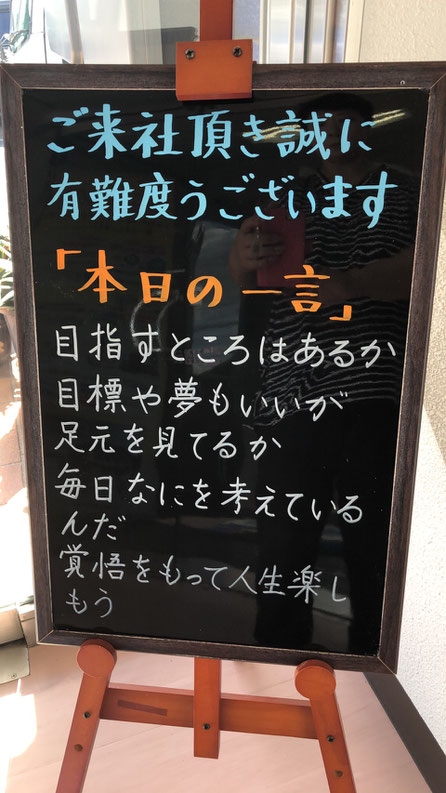 ご来社頂き誠に
有難度うございます
「本日の一言」
目指すところはあるか
目標や夢もいいが
足元を見てるか
毎日なにを考えている
んだ
覚悟をもって人生楽し
もう